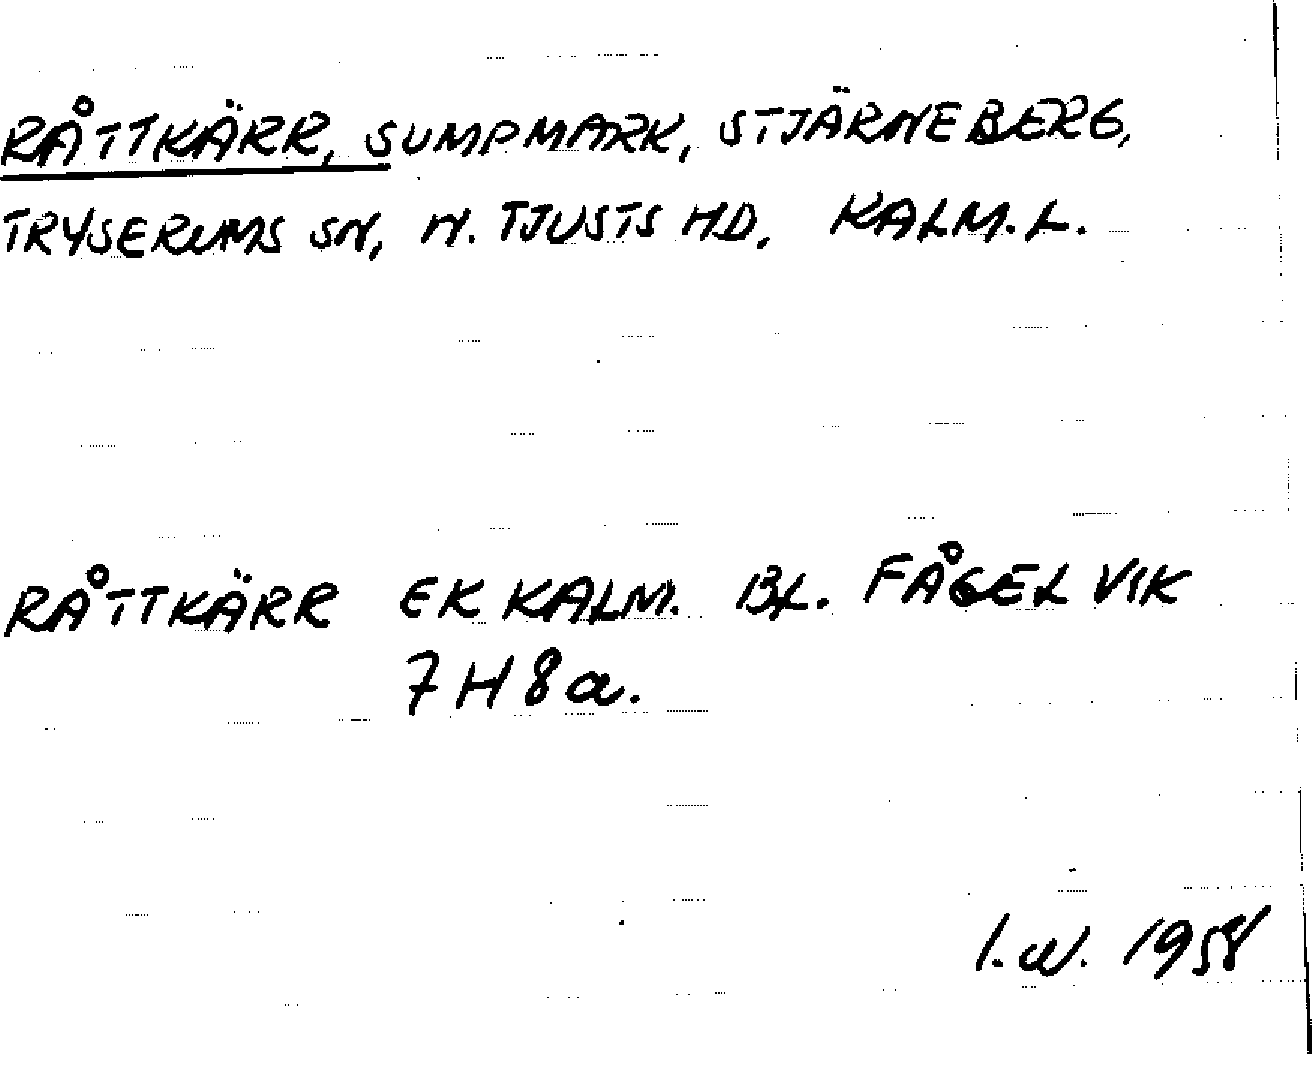 RÅTTKÄRR, SUMPMARK, STJÄRNEBERG,
TRYSERUMS SN, N. TJUSTS HD, KALM.L.
RÅTTKÄRR EK KALM. BL. FÅGELVIK
7H8a.
I.W. 1958